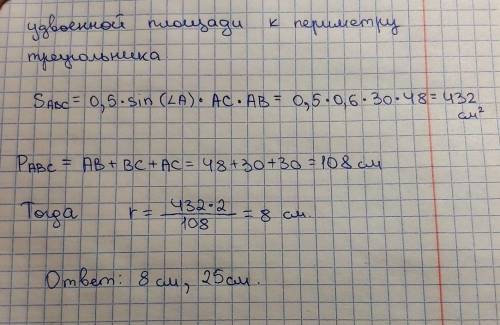 удвоенной площади к периметру
треугольника
S_ABC = 0,5·sin(∠A)·AC·AB = 0,5·0,6·30·48 = 432 см²
P_ABC = AB + BC + AC = 48 + 30 + 30 = 108 см
Тогда r = 432·2 / 108 = 8 см.
Ответ: 8 см, 25 см.